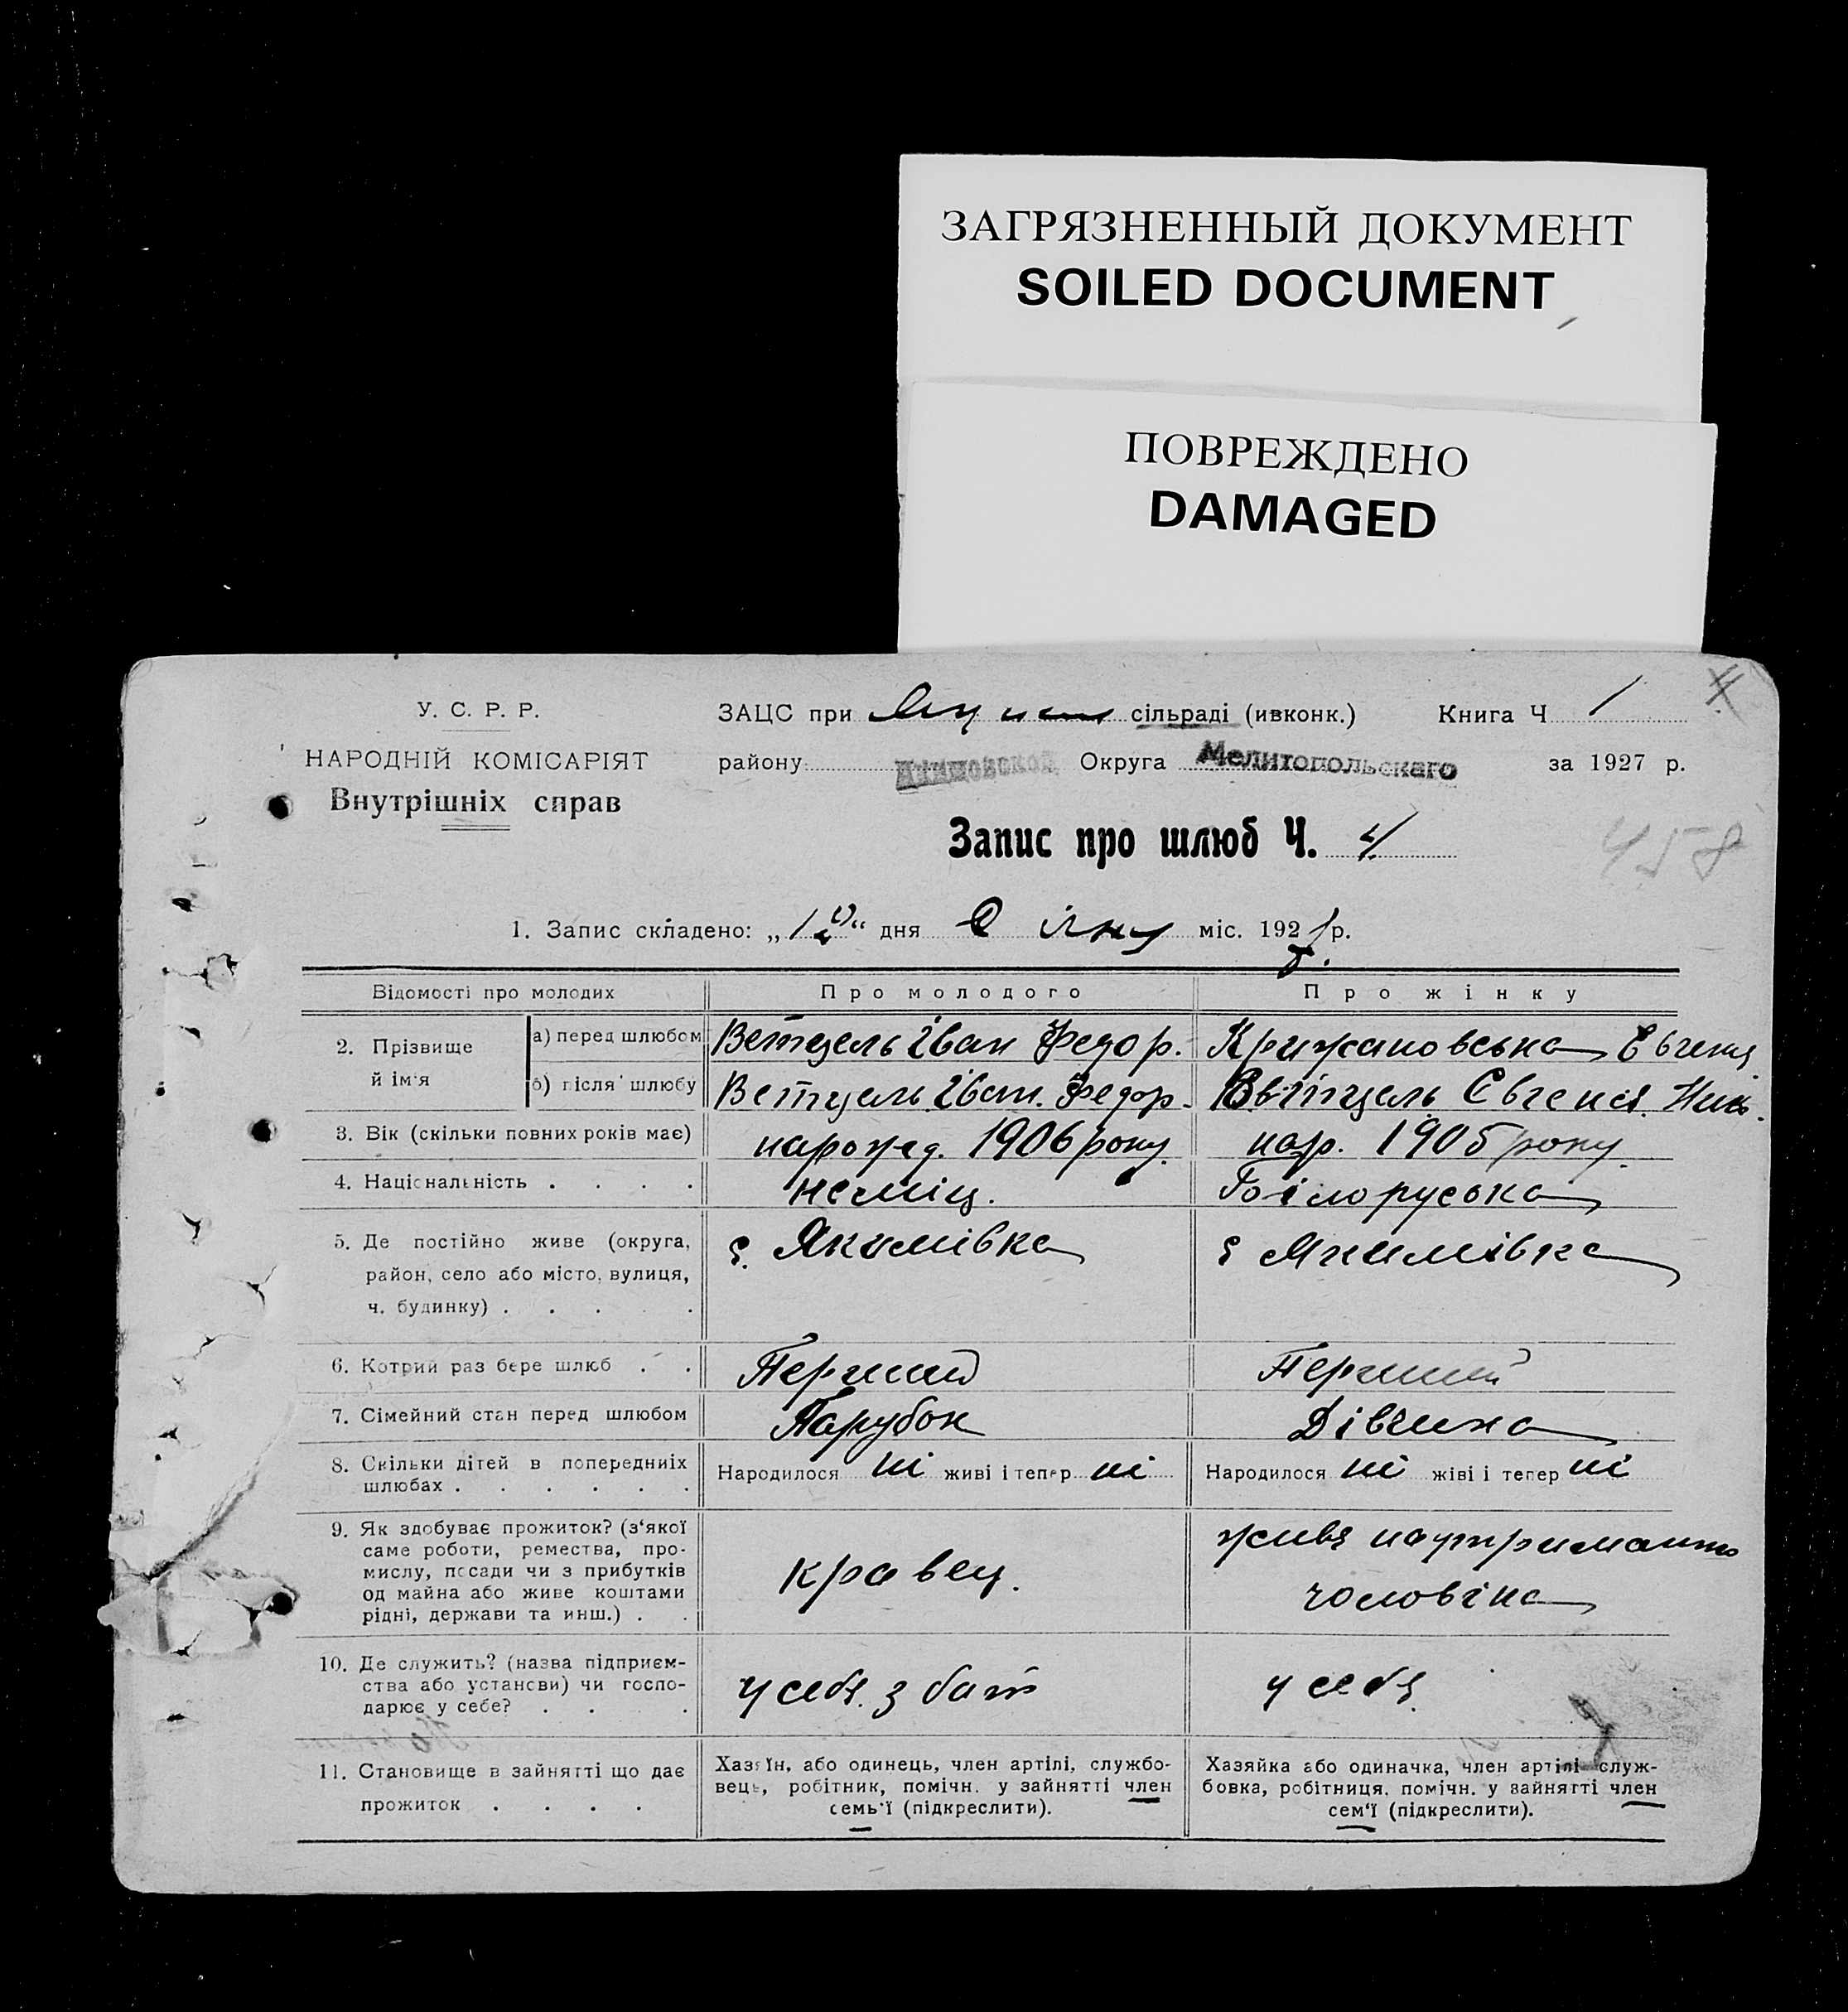 ЗАГРЯЗНЕННЫЙ ДОКУМЕНТ
SOILED DOCUMENT
ПОВРЕЖДЕНО
DAMAGED
У. С. Р. Р.
НАРОДНІЙ КОМІСАРІЯТ
Внутрішніх справ
ЗАЦС при сільраді (ивконк.) Книга Ч 1
району Округа Мелитопольскаго за 1927 р.
Запис про шлюб Ч. 4
458
1. Запис складено: „ “ дня міс. 1927 р.
Відомості про молодих
Про молодого
Про жінку
2. Прізвище й ім'я
а) перед шлюбом
Ветцель Іван Федор.
Крижановська Євгения
б) після шлюбу
Ветцель Іван. Федор.
Ветцель Євгения. Ник.
3. Вік (скільки повних років має)
народжед. 1906 року
нар. 1905 року.
4. Національність . . . .
неміц.
білоруська
5. Де постійно живе (округа,
район, село або місто, вулиця,
ч. будинку) . . . . .
с. Якимівка
с Якимівка
6. Котрий раз бере шлюб . .
Перший
Перший
7. Сімейний стан перед шлюбом
Парубок
Дівчина
8. Скільки дітей в попередниіх
шлюбах . . . . . .
Народилося ні живі і тепер ні
Народилося ні жіві і тепер ні
9. Як здобуває прожиток? (з'якої
саме роботи, ремества, про-
мислу, посади чи з прибутків
од майна або живе коштами
рідні, держави та инш.) . .
кравец.
живе на утриманню
чоловіка
10. Де служить? (назва підприєм-
ства або установи) чи госпо-
дарює у себе? . . . .
у себе. з бат
у себе
11. Становище в зайнятті що дає
прожиток . . . .
Хазяїн, або одинець, член артілі, службо-
вець, робітник, помічн. у зайнятті член
семь'ї (підкреслити).
Хазяйка або одиначка, член артілі служ-
бовка, робітниця, помічн. у зайнятті член
сем'ї (підкреслити).